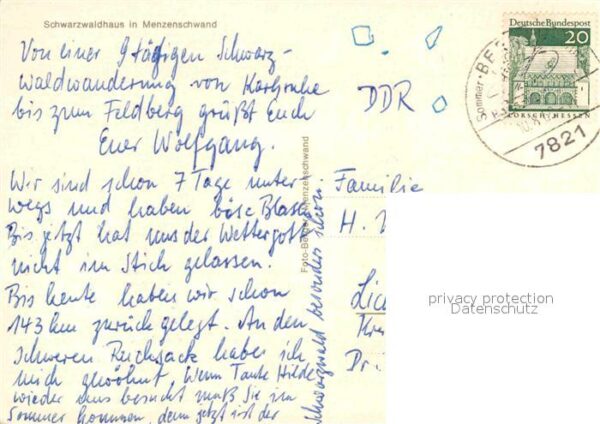 Schwarzwaldhaus in Menzenschwand
Von einer 9tägigen Schwarz-
waldwanderung von Karlsruhe
bis zum Feldberg grüßt Euch
Euer Wolfgang.
Wir sind schon 7 Tage unter-
wegs und haben böse Blasen
Bis jetzt hat uns der Wettergott
nicht im Stich gelassen.
Bis heute haben wir schon
143 km zurück gelegt. An den
schweren Rucksack habe ich
mich gewöhnt. Wenn Tante Hilde
wieder uns besucht muß sie im
Sommer kommen, denn jetzt ist der
Schwarzwald besonders schön
Foto-
Menzenschwand
DDR
Familie
H.
Dr.
Deutsche Bundespost
20
LORSCH/HESSEN
Sommer
7821
privacy protection
Datenschutz